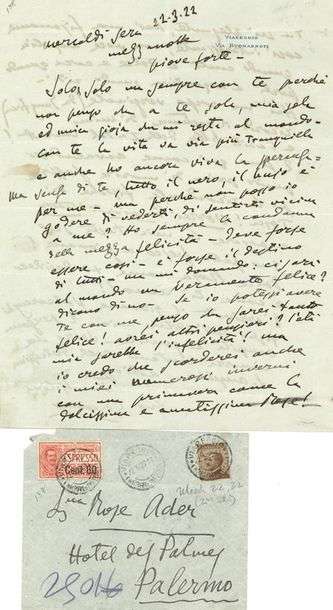 22-3.22
mercoldì sera
mezzanotte
piove forte -
VIAREGGIO
VIA BUONARROTI
Solo, solo ma sempre con te perchè
non penso che a te sola, mia sola
ed unica gioja che mi resti al mondo -
con te la vita va via più tranquilla
e anche ho ancora viva la speranza -
ma senza di te, tutto il nero, il bujo è
per me - ma perchè non posso io
godere di vederti, di sentirti vicin
a me? Ho sempre la condanna
della mezza felicità - Deve forse
essere così - è forse il destino
di tutti - ma mi domando: ci sarà
al mondo un veramente felice?
dicono di no - Se io potessi avere
te con me penso che sarei tanto
felice! avrei altri pensieri? l'età
mia sarebbe l'infelicità! ma
io credo che scorderei anche
i miei numerosi inverni
con una primavera come la
dolcissima e amatissima
ESPRESSO
Cent. 60
Rose Ader
Hotel des Palmes
Palermo